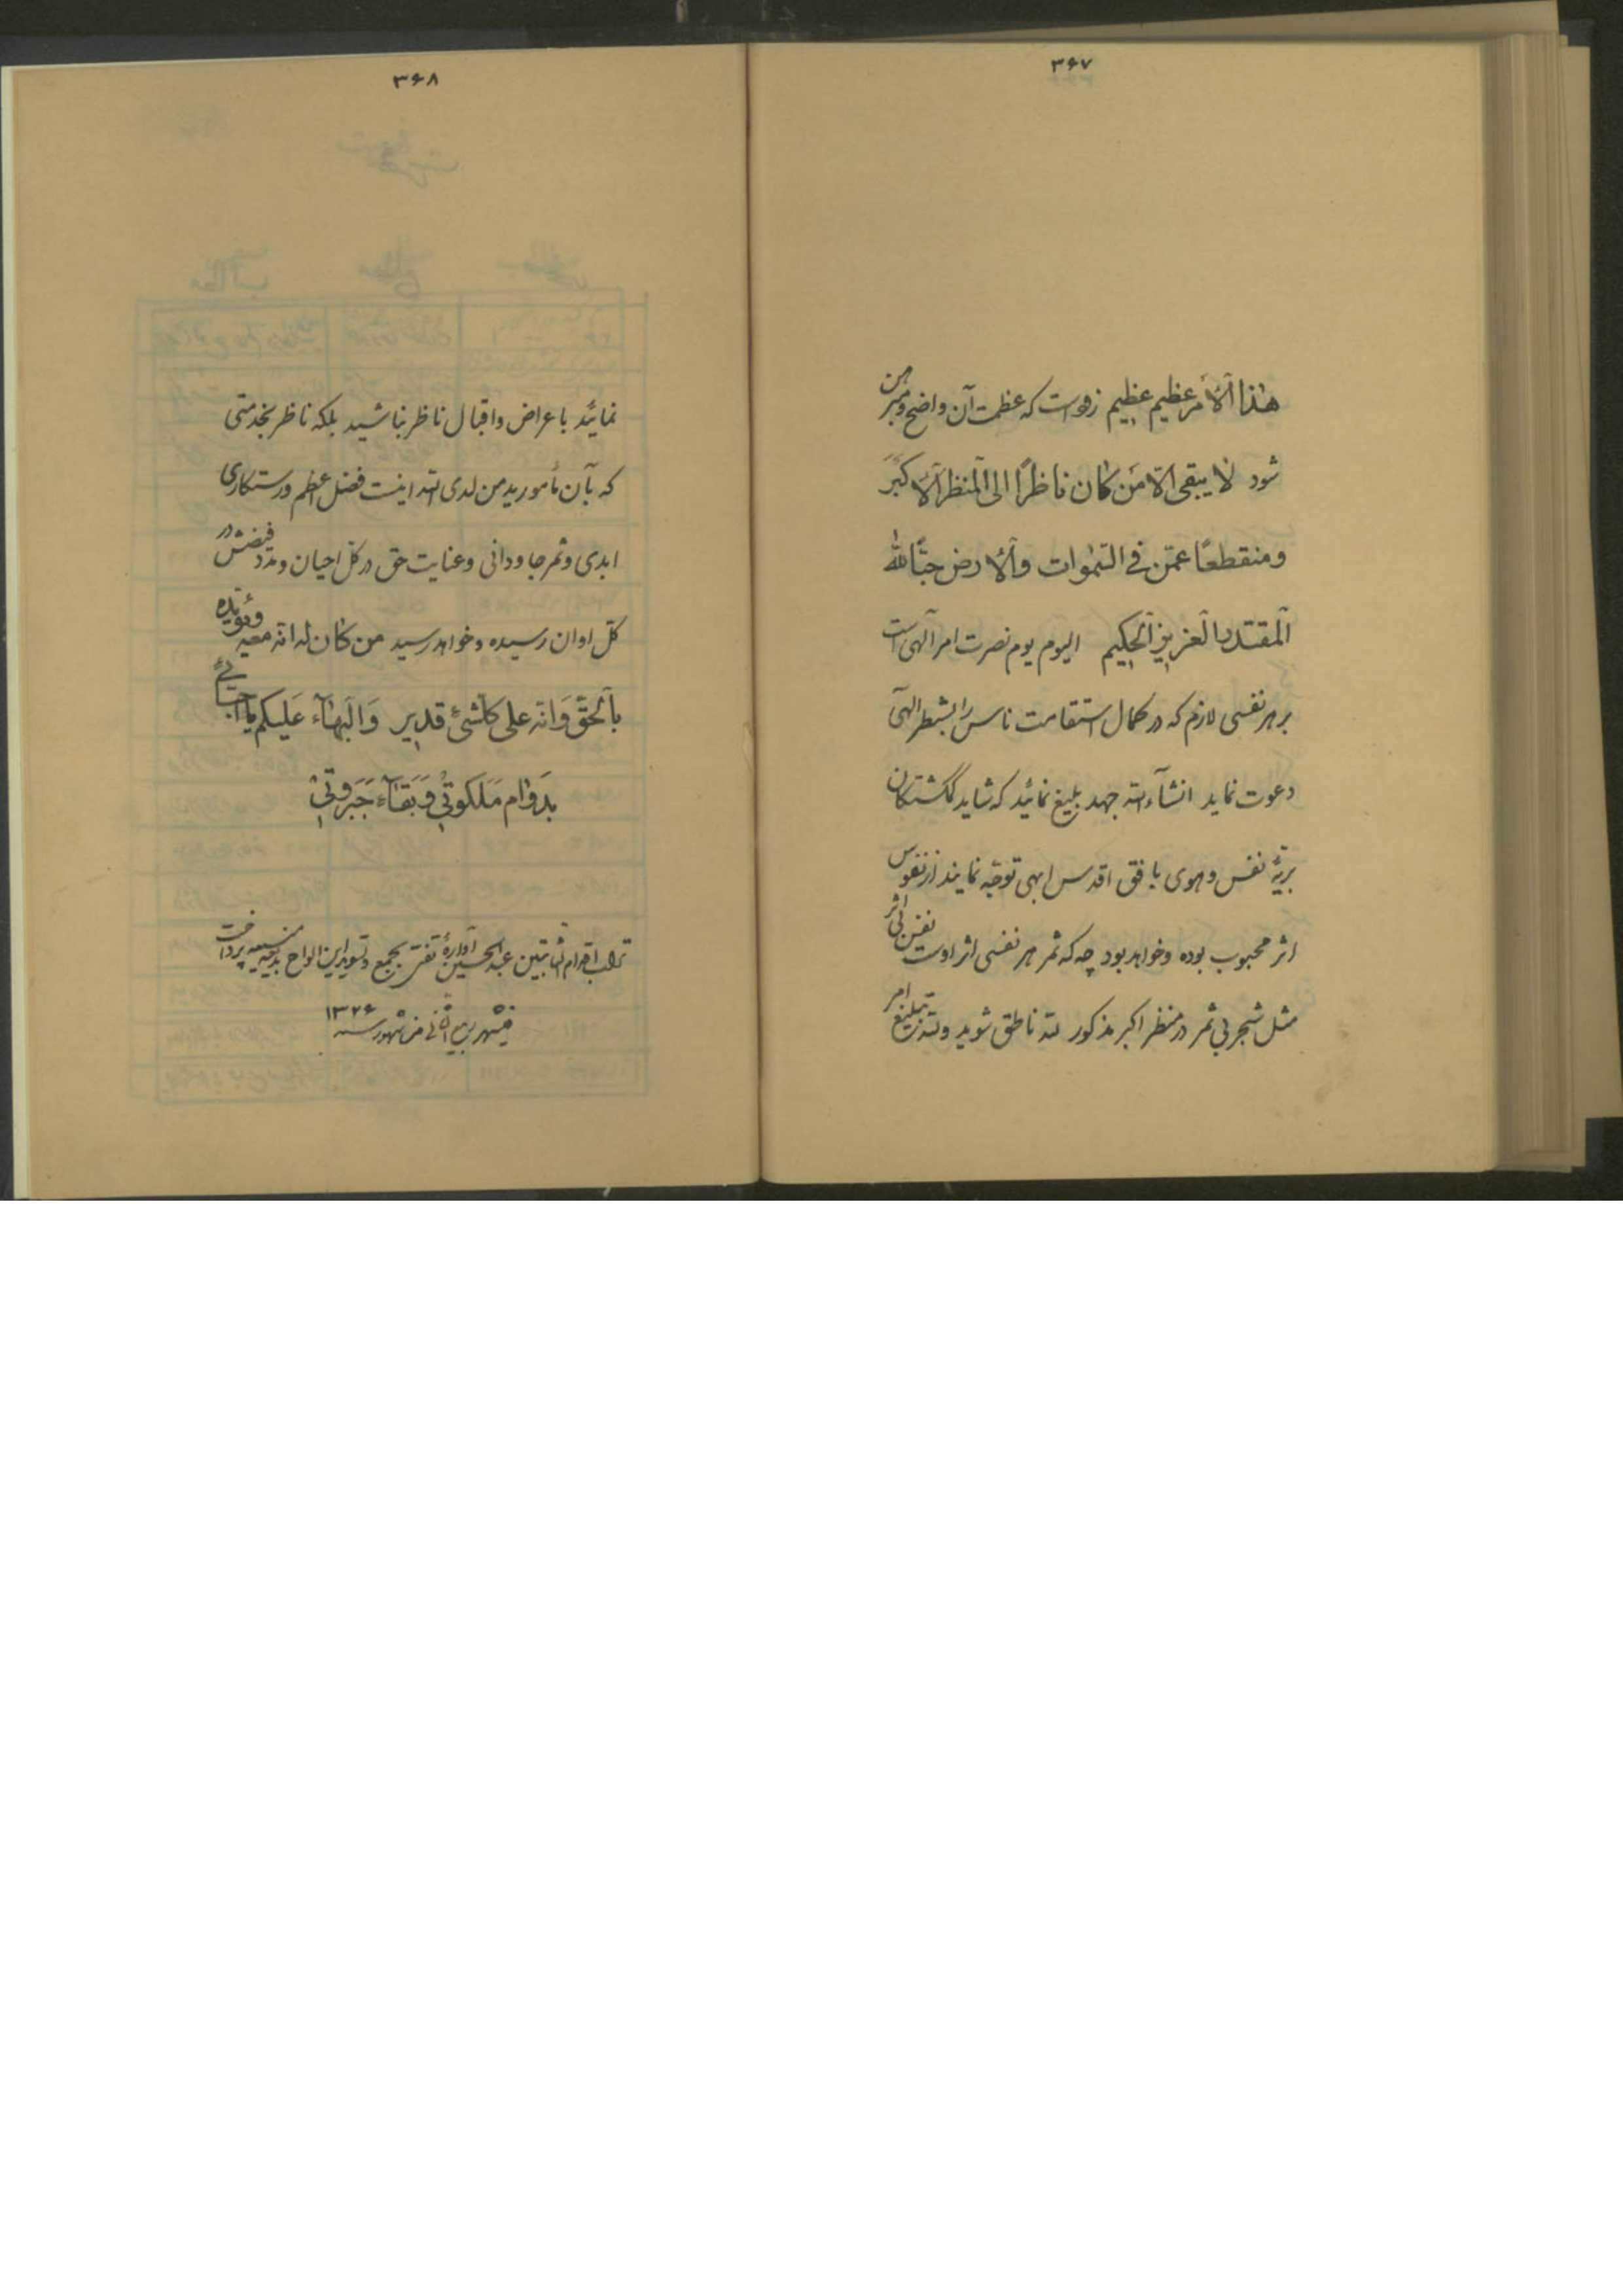 ۳۶۷
هذا الأمر عظیم عظیم زود است که عظمت آن واضح و مبرهن
شود لا یبقی الّا مَن کان ناظرًا الی المنظر الاکبَر
و منقطعًا عمّن فی السّموات و الأرض حبًّا لله
المقتدر العزیز الحکیم الیوم یوم نصرت امر الهی است
بر هر نفسی لازم که در کمال استقامت ناس را بشطر الهی
دعوت نماید انشآءالله جهد بلیغ نمائید که شاید گمگشتگان
بریّهٴ نفس و هوی بافق اقدس ابهی توجّه نمایند از نفوس
اثر محبوب بوده و خواهد بود چه که ثمر هر نفسی اثر اوست نفس بی اثر
مثل شجر بی ثمر در منظر اکبر مذکور لله ناطق شوید و لله تبلیغ امر
۳۶۸
نمائید باعراض و اقبال ناظر نباشید بلکه ناظر بخدمتی
که بآن مأمورید من لدی الله اینست فضل اعظم و رستکاری
ابدی و ثمر جاودانی و عنایت حق در کلّ احیان و مدد فیضش در
کلّ اوان رسیده و خواهد رسید من کان لله انّه معه و یؤیّده
بالحقّ وَ انّه علی کلّشیٴ قدیر وَ البَهآء عَلیکم یا احبّائی
بدَوام مَلَکوتی وَ بَقآء جَبَروتی
تراب اقدام الثّابتین عبدالحسین آوارهٴ تفتی بجمع و تسوید این الواح بدیعه پرداخت
فی شهر ربیع الثّانی من شهور سنه ۱۳۲۶